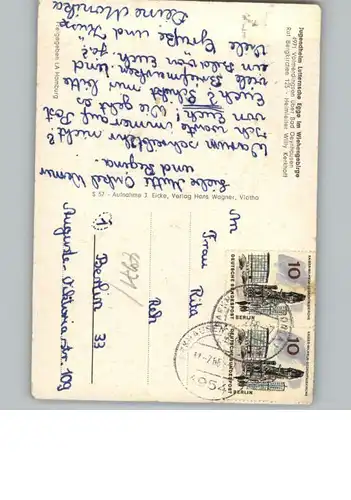 Jugendheim Lutternsche Egge im Wiehengebirge
4971 Volmerdingsen über Bad Oeynhausen
Ruf Bergkirchen 125 - Heimleiter: Willy Kerkhoff
Liebe Mutti, Onkel Werner
und Regina.
Warum schreibt Ihr nicht?
Ich warte immer auf Post
von Euch! Wie geht es
Euch? Schickt mir bitte
viele Briefmarken und
ein Bild von Euch ja?
Viele Grüße und Küsse
Deine Monika
S 57 - Aufnahme J. Ercke, Verlag Hans Wagner, Vlotho
An
Frau Rita
Reh
1 Berlin 33
Auguste-Viktoria-str. 109
10
DEUTSCHE BUNDESPOST
BERLIN
10
DEUTSCHE BUNDESPOST
BERLIN
4954